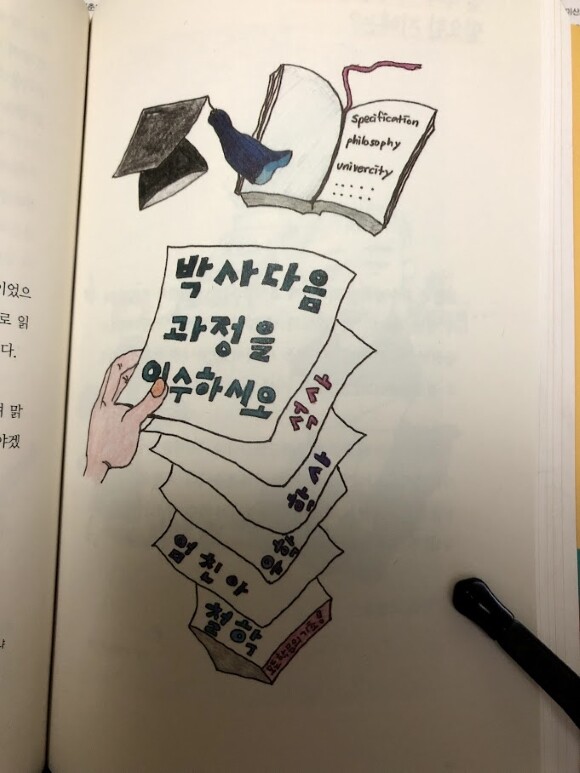 specification
philosophy
univercity
박사다음
과정을
이수하시오
석사
학사
엄친아
철학
이었으
로 읽
다.